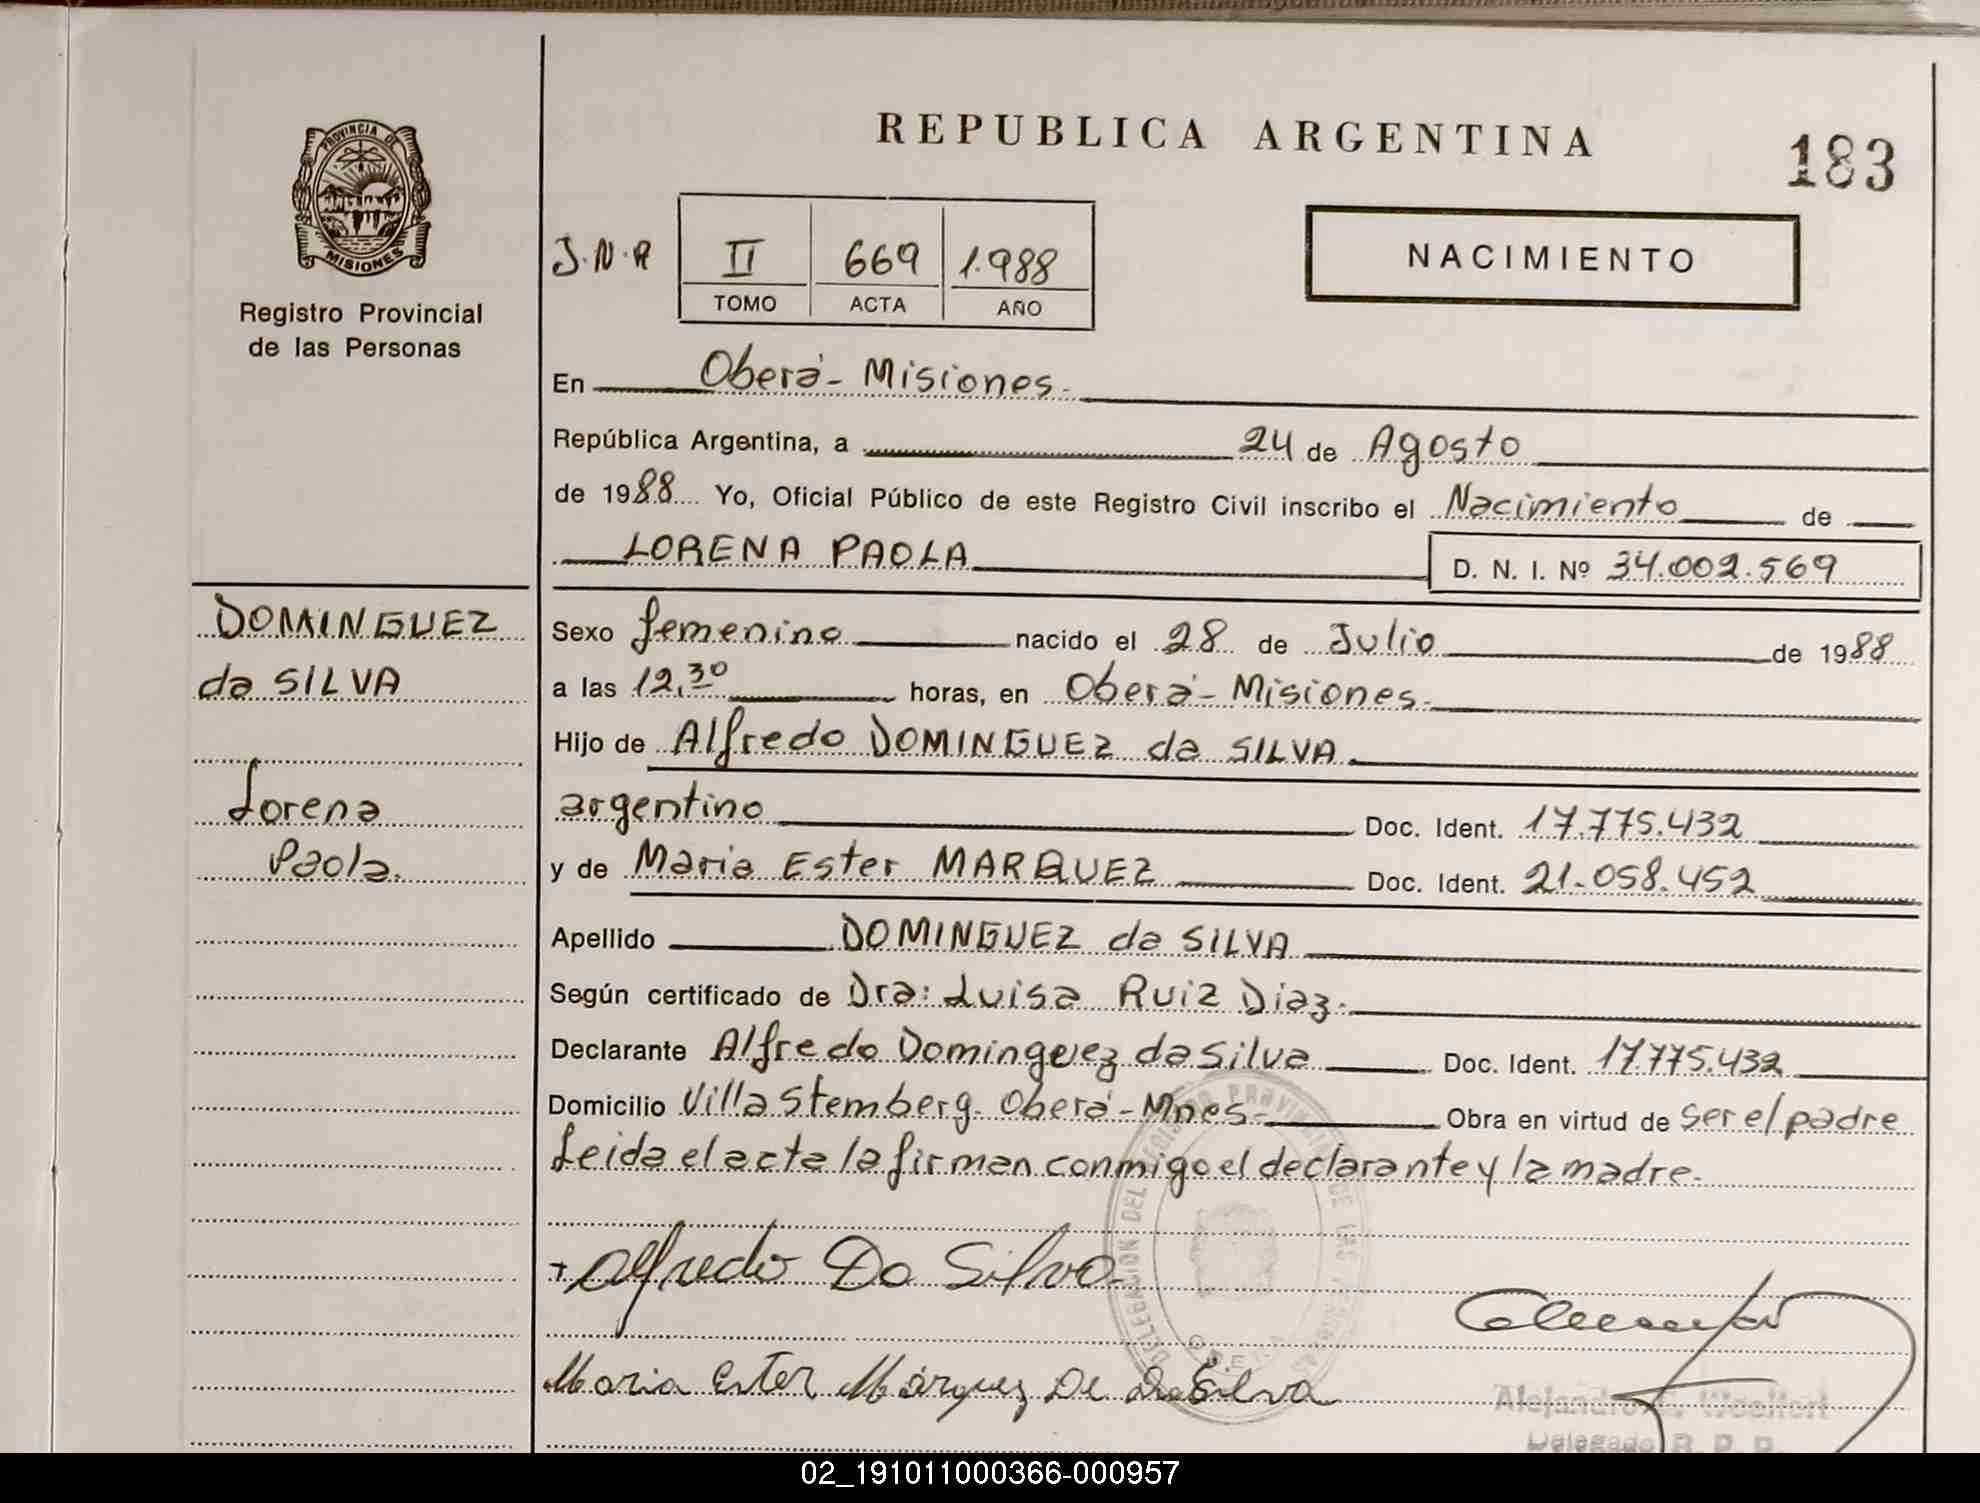 PROVINCIA DE
MISIONES
Registro Provincial
de las Personas
REPUBLICA ARGENTINA
183
J.N.R
II 669 1.988
TOMO ACTA AÑO
NACIMIENTO
En Oberá - Misiones.
República Argentina, a 24 de Agosto
de 1988 Yo, Oficial Público de este Registro Civil inscribo el Nacimiento de
LORENA PAOLA
D. N. I. Nº 34.002.569
DOMINGUEZ
da SILVA
Lorena
Paola.
Sexo femenino nacido el 28 de Julio de 1988
a las 12,30 horas, en Oberá - Misiones.
Hijo de Alfredo DOMINGUEZ da SILVA
argentino Doc. Ident. 17.775.432
y de Maria Ester MARQUEZ Doc. Ident. 21.058.452
Apellido DOMINGUEZ da SILVA
Según certificado de Dra: Luisa Ruiz Diaz.
Declarante Alfredo Dominguez da Silva Doc. Ident. 17.775.432
Domicilio Villa Stemberg. Oberá - Mnes. Obra en virtud de ser el padre
Leida el acta la firman conmigo el declarante y la madre.
Alfredo Da Silva
Maria Ester Márquez De Da Silva
DELEGACION DEL REGISTRO PROVINCIAL DE LAS PERSONAS
Delegado R. P. P.
02_191011000366-000957